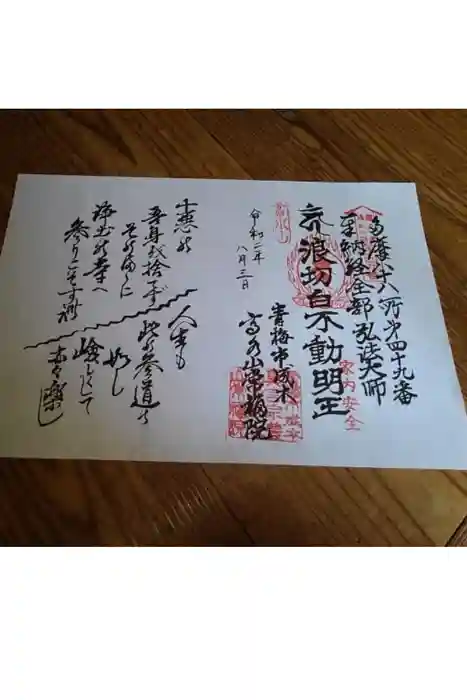 多摩八十八所第四十九番
奉納経全部弘法大師
家内安全
浪切白不動明王
青梅市成木
高水山常福院
令和二年
八月三日
十悪の
吾身を捨てず
そのままに
浄土の寺へ
参りこそすれ
人生も
此の参道の
如し
険しくて
亦楽し